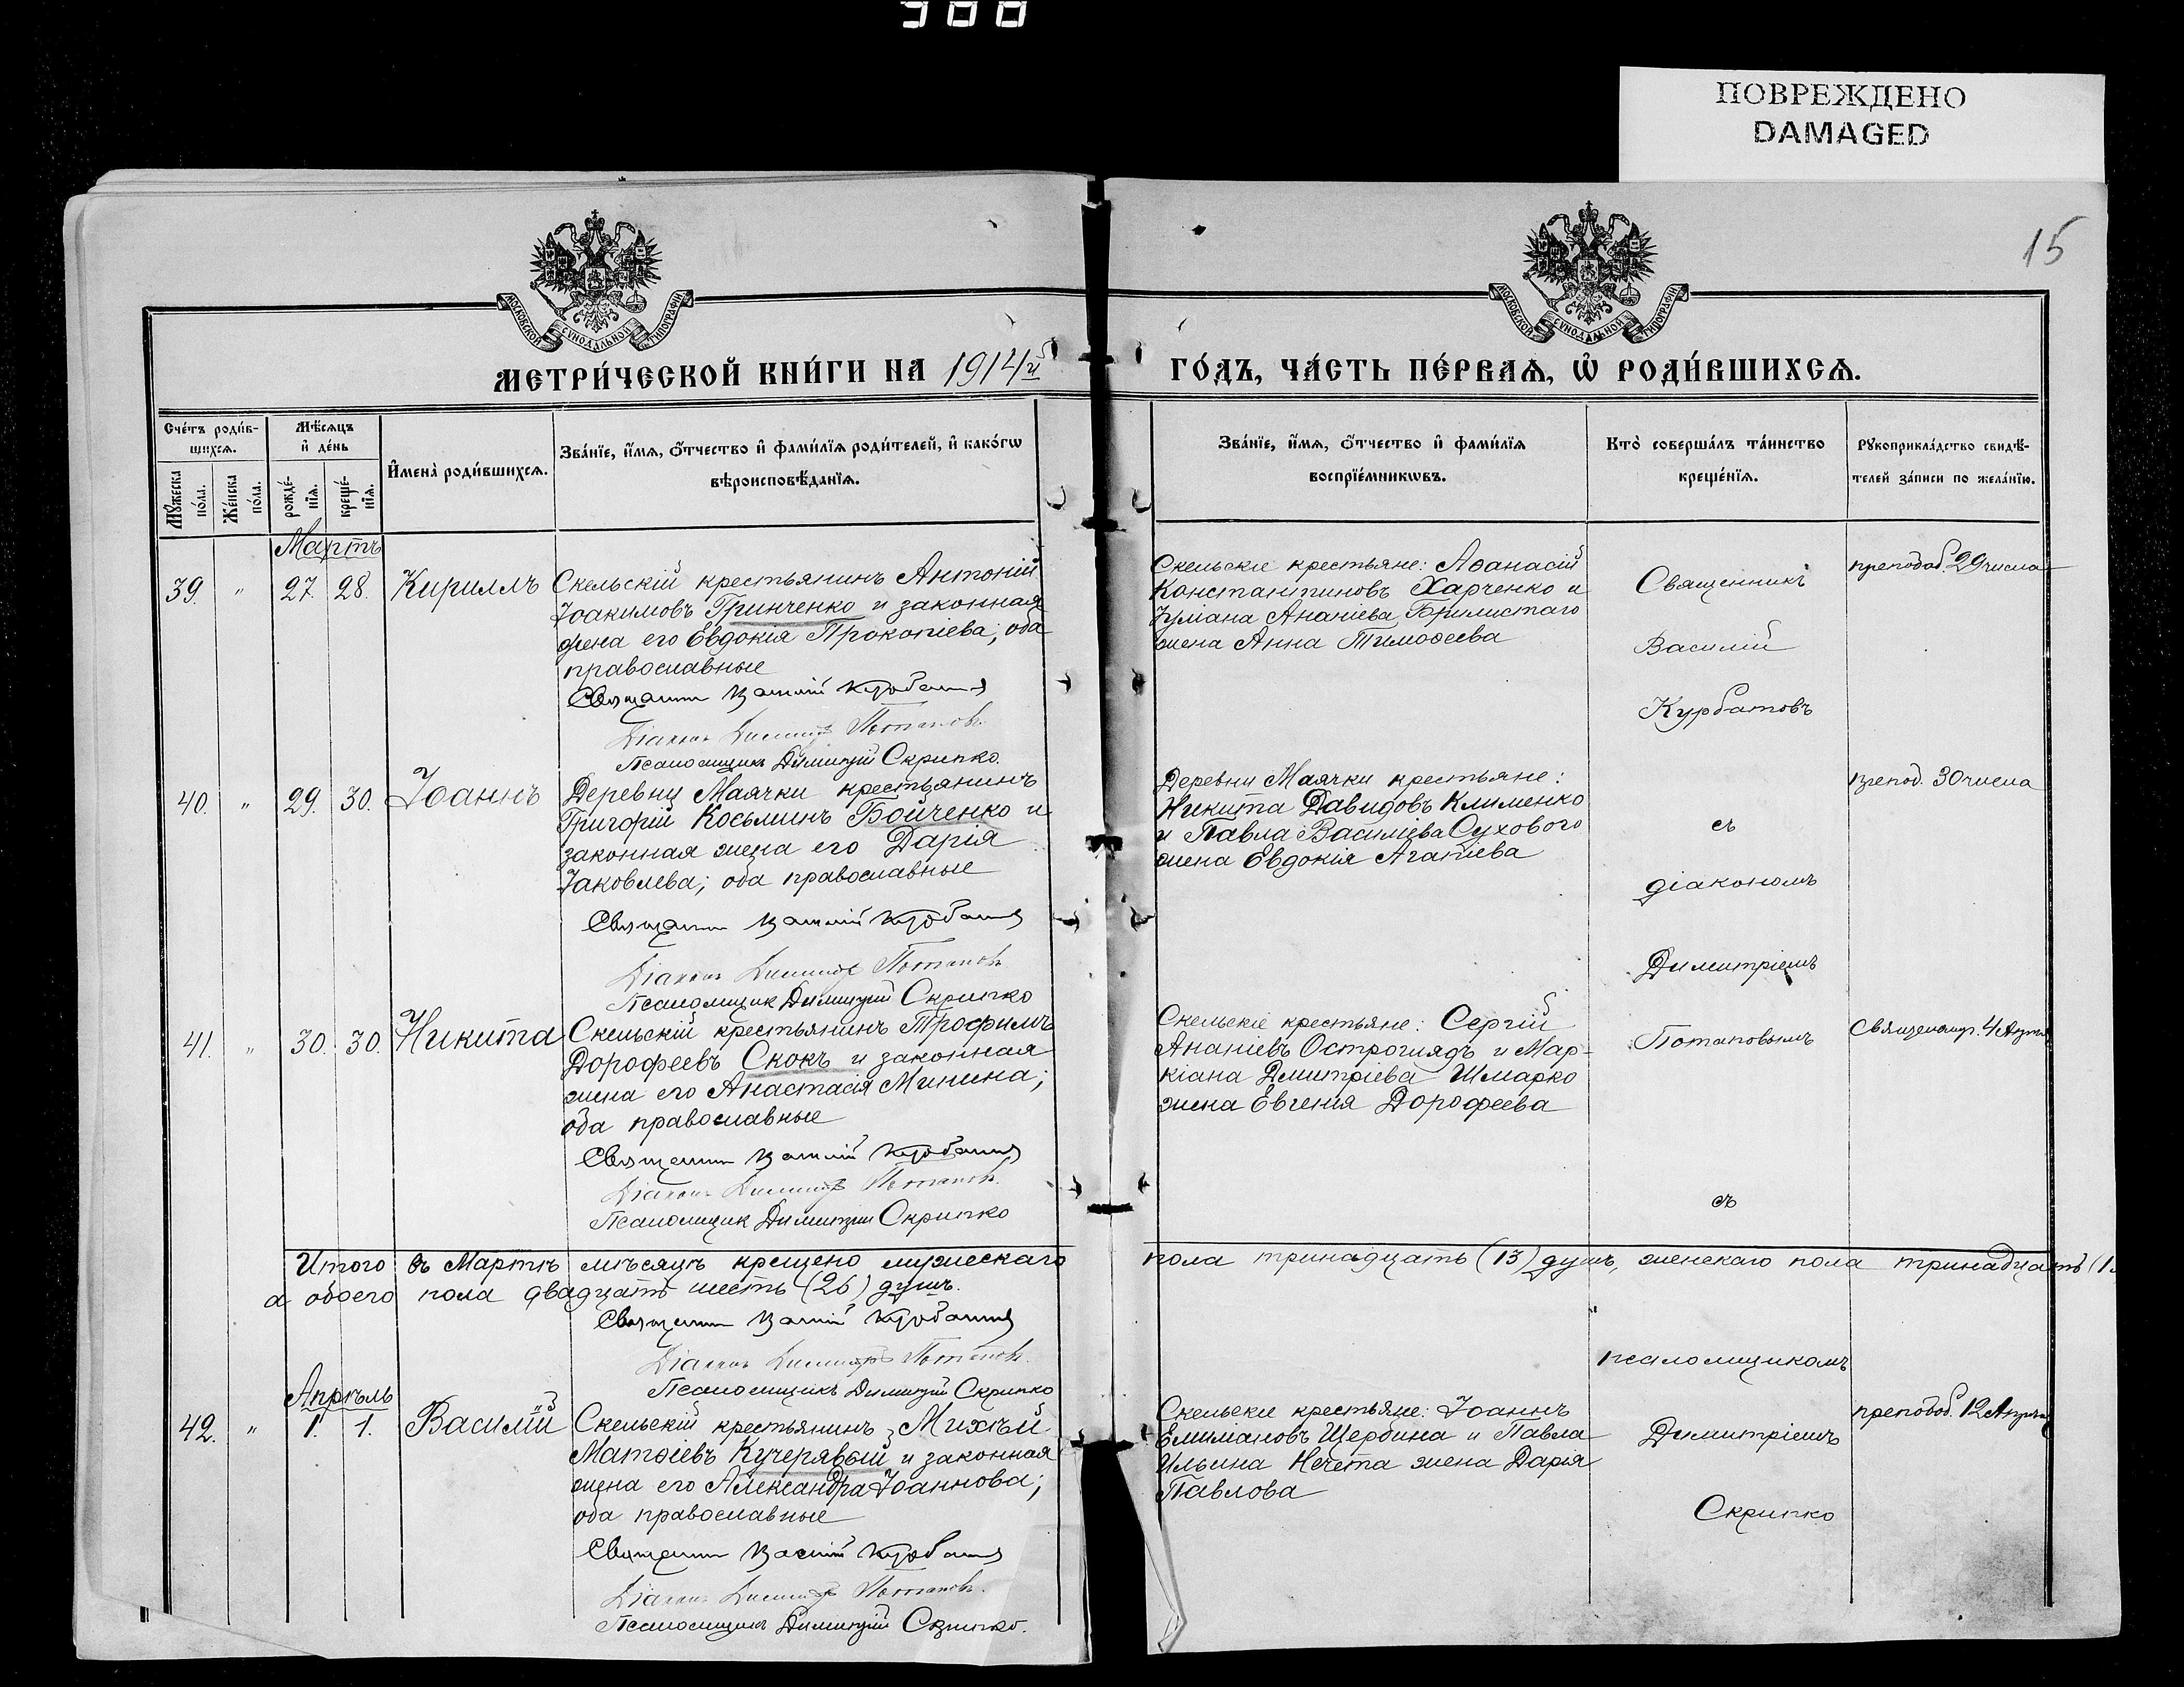 ПОВРЕЖДЕНО
DAMAGED
15
МОСКОВСКОЙ СУНОДАЛЬНОЙ ТИПОГРАФІИ
МОСКОВСКОЙ СУНОДАЛЬНОЙ ТИПОГРАФІИ
МЕТРИ́ЧЕСКОЙ КНИ́ГИ НА 1914й
ГО́ДЪ, ЧА́СТЬ ПЕ́РВАѦ, Ѡ҆ РОДИ́ВШИХСѦ.
Сче́тъ роди́в-
шихсѧ.
Мѣ́сѧцъ
и҆ де́нь
Мꙋ́жеска
по́ла.
Же́нска
по́ла.
рожде́-
нїѧ.
креще́-
нїѧ.
И҆мена̀ роди́вшихсѧ.
Зва́нїе, и҆́мѧ, ѻ҆́тчество и҆ фами́лїѧ роди́телей, и҆ како́гѡ
вѣроисповѣ́данїѧ.
Зва́нїе, и҆́мѧ, ѻ҆́тчество и҆ фами́лїѧ
воспрїе́мникѡвъ.
Кто̀ соверша́лъ та́инство
креще́нїѧ.
Рꙋкоприкла́дство свидѣ́-
телей за́писи по жела́нїю.
Мартъ
39. " 27. 28. Кириллъ
Скельскій крестьянинъ Антоній
Іоакимовъ Гринченко и законная
жена его Евдокія Прокопіева; оба
православные
Священник Василій Курбатов
Діаконъ Димитрій Потаповъ.
Псаломщикъ Димитрій Скрипко.
Скельскіе крестьяне: Аѳанасій
Константиновъ Харченко и
Іуліана Ананіева
жена Анна Тимоѳеева
Священникъ
Василій
Курбатовъ
преподоб. 29 числа
40. " 29. 30. Іоаннъ
Деревни Маячки крестьянинъ
Григорій Косьминъ Бойченко и
законная жена его Дарія
Іаковлева; оба православные
Священник Василій Курбатов
Діаконъ Димитрій Потаповъ
Псаломщик Димитрій Скрипко
Деревни Маячки крестьяне:
Никита Давидовъ Клименко
и Павла Василіева Сухового
жена Евдокія Агапіева
съ
діакономъ
Димитріемъ
препод. 30 числа
41. " 30. 30. Никита
Скельскій крестьянинъ Трофимъ
Дорофеевъ Скокъ и законная
жена его Анастасія Минина;
оба православные
Священник Василій Курбатов
Діаконъ Димитрій Потаповъ.
Псаломщик Димитрій Скрипко
Скельскіе крестьяне: Сергій
Ананіевъ Остроглядъ и Мар-
кіана Дмитріева Шмарко
жена Евгенія Дорофеева
Потаповымъ
съ
Священомуч. 4 Апрѣля
Итого въ Мартѣ мѣсяцѣ крещено мужескаго пола тринадцать (13) душъ, женскаго пола тринадцать (1
а обоего пола двадцать шесть (26) душъ.
Священник Василій Курбатов
Діаконъ Димитрій Потаповъ.
Псаломщикъ Димитрій Скрипко
псаломщикомъ
Апрѣль
42. " 1. 1. Василій
Скельскій крестьянинъ
Матѳіевъ Кучерявый и законная
жена его Александра Іоаннова;
оба православные
Священник Василій Курбатов
Діаконъ Димитрій Потаповъ.
Псаломщикъ Димитрій Скрипко.
Скельскіе крестьяне: Іоаннъ
Щербина и Павла
Ильина Нечета жена Дарія
Павлова
Димитріемъ
Скрипко
преподоб. 12 Апрѣля